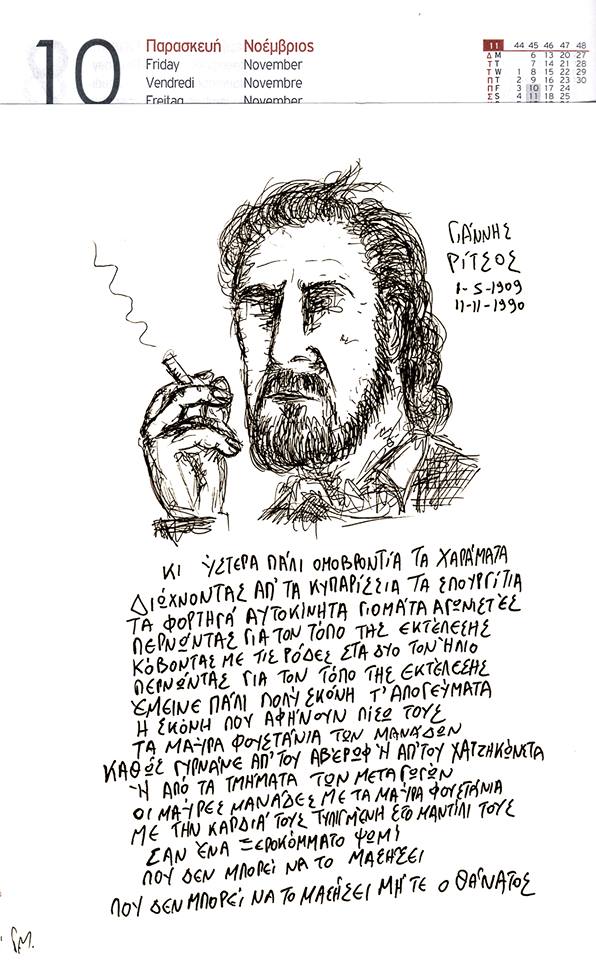 10
Παρασκευή Νοέμβριος
Friday November
Vendredi Novembre
Freitag November
11 44 45 46 47 48
Δ M 6 13 20 27
Τ T 7 14 21 28
Τ W 1 8 15 22 29
Π T 2 9 16 23 30
Π F 3 10 17 24
Σ S 4 11 18 25
ΓΙΑΝΝΗΣ
ΡΙΤΣΟΣ
1-5-1909
11-11-1990
ΚΙ ΎΣΤΕΡΑ ΠΆΛΙ ΟΜΟΒΡΟΝΤΊΑ ΤΑ ΧΑΡΆΜΑΤΑ
ΔΙΏΧΝΟΝΤΑΣ ΑΠ' ΤΑ ΚΥΠΑΡΊΣΣΙΑ ΤΑ ΣΠΟΥΡΓΊΤΙΑ
ΤΑ ΦΟΡΤΗΓΆ ΑΥΤΟΚΊΝΗΤΑ ΓΙΟΜΆΤΑ ΑΓΩΝΙΣΤΈΣ
ΠΕΡΝΏΝΤΑΣ ΓΙΑ ΤΟΝ ΤΌΠΟ ΤΗΣ ΕΚΤΈΛΕΣΗΣ
ΚΌΒΟΝΤΑΣ ΜΕ ΤΙΣ ΡΌΔΕΣ ΣΤΑ ΔΥΟ ΤΟΝ ΉΛΙΟ
ΠΕΡΝΏΝΤΑΣ ΓΙΑ ΤΟΝ ΤΌΠΟ ΤΗΣ ΕΚΤΈΛΕΣΗΣ
ΈΜΕΙΝΕ ΠΆΛΙ ΠΟΛΎ ΣΚΌΝΗ Τ' ΑΠΟΓΕΎΜΑΤΑ
Η ΣΚΌΝΗ ΠΟΥ ΑΦΉΝΟΥΝ ΠΊΣΩ ΤΟΥΣ
ΤΑ ΜΑΎΡΑ ΦΟΥΣΤΆΝΙΑ ΤΩΝ ΜΑΝΆΔΩΝ
ΚΑΘΏΣ ΓΥΡΝΆΝΕ ΑΠ' ΤΟΥ ΑΒΈΡΩΦ Ή ΑΠ' ΤΟΥ ΧΑΤΖΗΚΏΝΣΤΑ
Ή ΑΠΌ ΤΑ ΤΜΉΜΑΤΑ ΤΩΝ ΜΕΤΑΓΩΓΏΝ
ΟΙ ΜΑΎΡΕΣ ΜΑΝΆΔΕΣ ΜΕ ΤΑ ΜΑΎΡΑ ΦΟΥΣΤΆΝΙΑ
ΜΕ ΤΗΝ ΚΑΡΔΙΆ ΤΟΥΣ ΤΥΛΙΓΜΈΝΗ ΣΤΟ ΜΑΝΤΊΛΙ ΤΟΥΣ
ΣΑΝ ΈΝΑ ΞΕΡΟΚΌΜΜΑΤΟ ΨΩΜΊ
ΠΟΥ ΔΕΝ ΜΠΟΡΕΊ ΝΑ ΤΟ ΜΑΣΉΣΕΙ
ΠΟΥ ΔΕΝ ΜΠΟΡΕΊ ΝΑ ΤΟ ΜΑΣΉΣΕΙ ΜΉΤΕ Ο ΘΆΝΑΤΟΣ